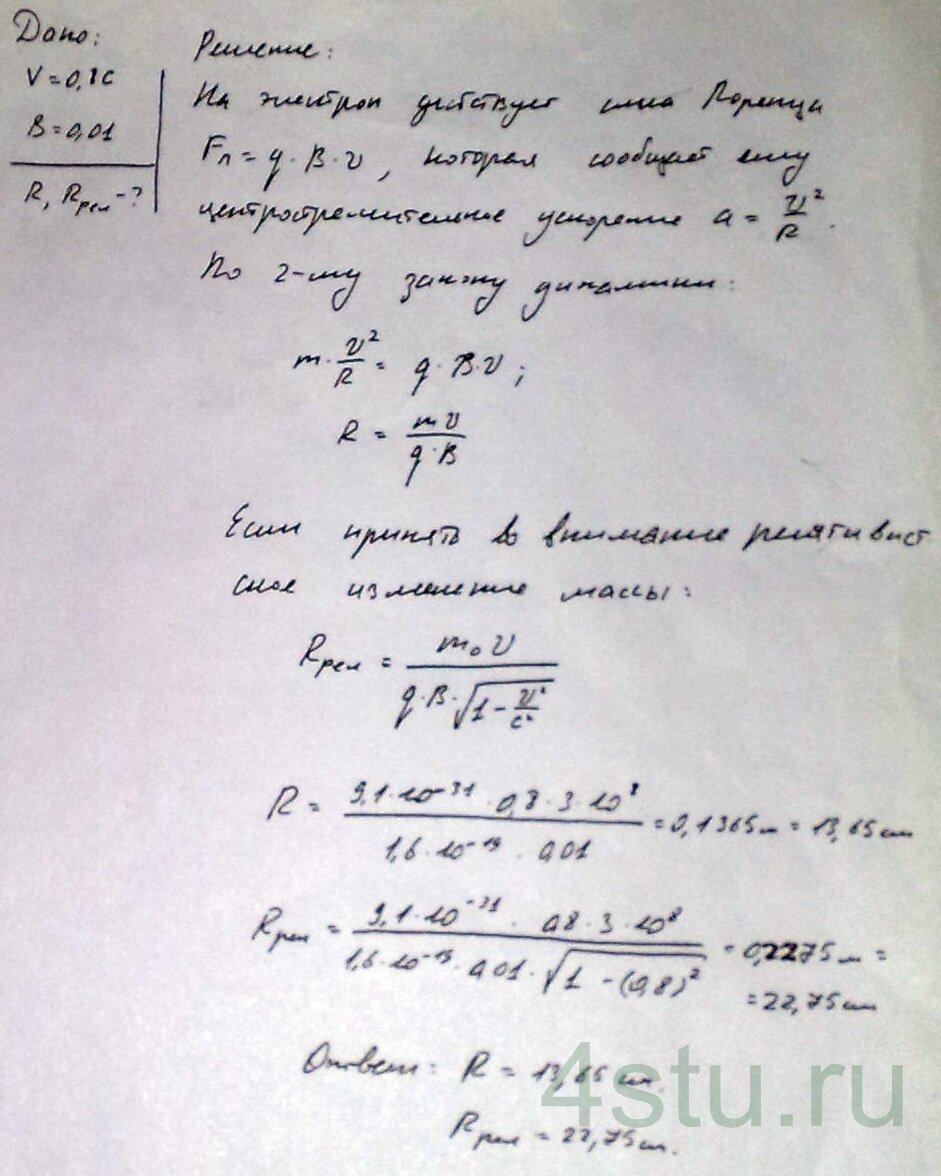 Дано:
V = 0,8c
B = 0,01
R, Rрел - ?
Решение:
На электрон действует сила Лоренца
Fл = q · B · v, которая сообщает ему
центростремительное ускорение a = v²/R.
По 2-му закону динамики:
m · v²/R = q · B · v ;
R = mv/(q · B)
Если принять во внимание релятивист
ское изменение массы:
Rрел = m₀v/(q · B · √(1 - v²/c²))
R = (9,1 · 10⁻³¹ · 0,8 · 3 · 10⁸)/(1,6 · 10⁻¹⁹ · 0,01) = 0,1365 м = 13,65 см
Rрел = (9,1 · 10⁻³¹ · 0,8 · 3 · 10⁸)/(1,6 · 10⁻¹⁹ · 0,01 · √(1 - (0,8)²)) = 0,2275 м =
= 22,75 см
Ответ: R = 13,65 см.
Rрел = 22,75 см.
4stu.ru